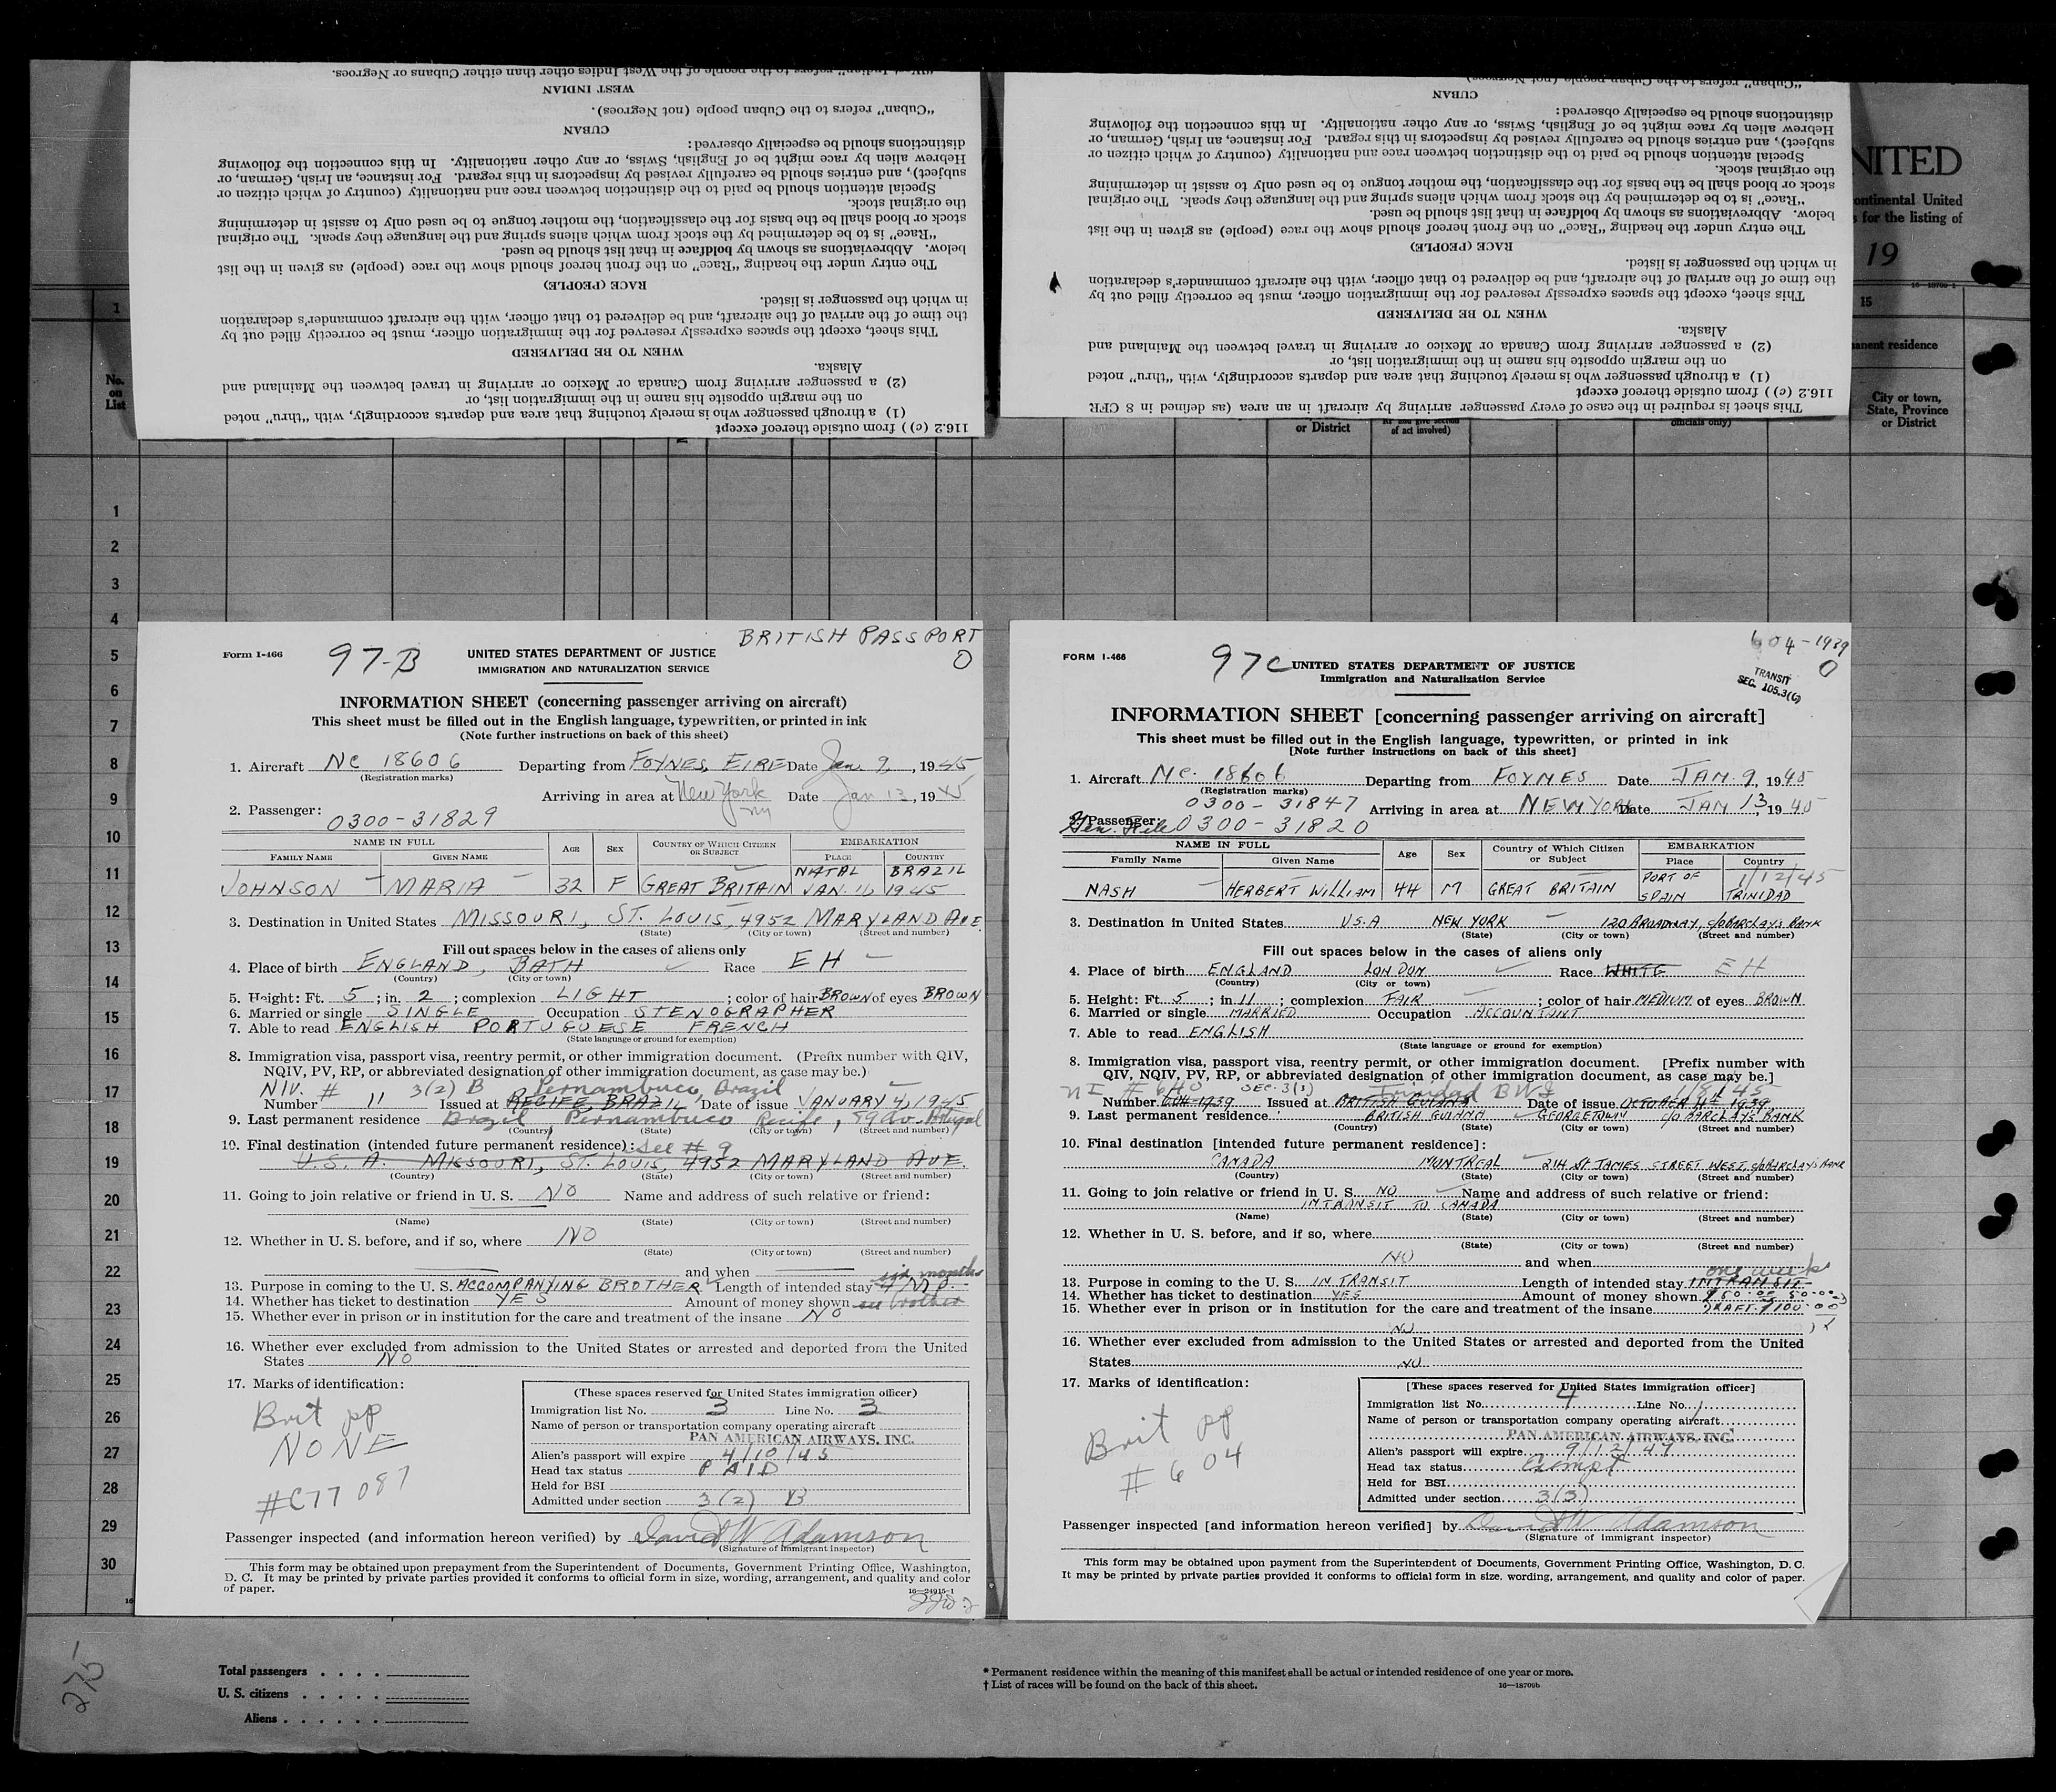 "West Indian" refers to the people of the West Indies other than either Cubans or Negroes.
WEST INDIAN
"Cuban" refers to the Cuban people (not Negroes).
CUBAN
distinctions should be especially observed:
Hebrew alien by race might be of English, Swiss, or any other nationality. In this connection the following
subject), and entries should be carefully revised by inspectors in this regard. For instance, an Irish, German, or
Special attention should be paid to the distinction between race and nationality (country of which citizen or
the original stock.
stock or blood shall be the basis for the classification, the mother tongue to be used only to assist in determining
"Race" is to be determined by the stock from which aliens spring and the language they speak. The original
below. Abbreviations as shown by boldface in that list should be used.
The entry under the heading "Race" on the front hereof should show the race (people) as given in the list
RACE (PEOPLE)
in which the passenger is listed.
the time of the arrival of the aircraft, and be delivered to that officer, with the aircraft commander's declaration
This sheet, except the spaces expressly reserved for the immigration officer, must be correctly filled out by
WHEN TO BE DELIVERED
Alaska.
(2) a passenger arriving from Canada or Mexico or arriving in travel between the Mainland and
on the margin opposite his name in the immigration list, or
(1) a through passenger who is merely touching that area and departs accordingly, with "thru" noted
116.2 (c) ) from outside thereof except
"Cuban" refers to the Cuban people (not Negroes)
CUBAN
distinctions should be especially observed:
Hebrew alien by race might be of English, Swiss, or any other nationality. In this connection the following
subject), and entries should be carefully revised by inspectors in this regard. For instance, an Irish, German, or
Special attention should be paid to the distinction between race and nationality (country of which citizen or
the original stock.
stock or blood shall be the basis for the classification, the mother tongue to be used only to assist in determining
"Race" is to be determined by the stock from which aliens spring and the language they speak. The original
below. Abbreviations as shown by boldface in that list should be used.
The entry under the heading "Race" on the front hereof should show the race (people) as given in the list
RACE (PEOPLE)
in which the passenger is listed.
the time of the arrival of the aircraft, and be delivered to that officer, with the aircraft commander's declaration
This sheet, except the spaces expressly reserved for the immigration officer, must be correctly filled out by
WHEN TO BE DELIVERED
Alaska.
(2) a passenger arriving from Canada or Mexico or arriving in travel between the Mainland and
on the margin opposite his name in the immigration list, or
(1) a through passenger who is merely touching that area and departs accordingly, with "thru" noted
116.2 (c) ) from outside thereof except
This sheet is required in the case of every passenger arriving by aircraft in an area (as defined in 8 CFR
NITED
ontinental United
s for the listing of
19
16—18709-1
15
anent residence
City or town,
State, Province
or District
or District
of act involved)
officials only)
1
No.
on
List
1
2
3
4
5
6
7
8
9
10
11
12
13
14
15
16
17
18
19
20
21
22
23
24
25
26
27
28
29
30
16
Form I-466
97-B
UNITED STATES DEPARTMENT OF JUSTICE
IMMIGRATION AND NATURALIZATION SERVICE
BRITISH PASSPORT
0
INFORMATION SHEET (concerning passenger arriving on aircraft)
This sheet must be filled out in the English language, typewritten, or printed in ink
(Note further instructions on back of this sheet)
1. Aircraft NC 18606 Departing from FOYNES, EIRE Date Jan. 9, 1945
(Registration marks)
Arriving in area at New York NY Date Jan 13, 1945
2. Passenger: 0300-31829
NAME IN FULL AGE SEX COUNTRY OF WHICH CITIZEN OR SUBJECT EMBARKATION
FAMILY NAME GIVEN NAME PLACE COUNTRY
NATAL BRAZIL
JOHNSON MARIA 32 F GREAT BRITAIN JAN. 11, 1945
3. Destination in United States MISSOURI, ST. LOUIS, 4952 MARYLAND AVE.
(State) (City or town) (Street and number)
Fill out spaces below in the cases of aliens only
4. Place of birth ENGLAND, BATH Race EH
(Country) (City or town)
5. Height: Ft. 5; in. 2; complexion LIGHT; color of hair BROWN of eyes BROWN
6. Married or single SINGLE Occupation STENOGRAPHER
7. Able to read ENGLISH PORTUGUESE FRENCH
(State language or ground for exemption)
8. Immigration visa, passport visa, reentry permit, or other immigration document. (Prefix number with QIV,
NQIV, PV, RP, or abbreviated designation of other immigration document, as case may be.)
NIV. # 3(2) B Pernambuco, Brazil
Number 11 Issued at RECIFE, BRAZIL, Date of issue JANUARY 4, 1945
9. Last permanent residence Brazil Pernambuco Recife, 59 Av.
(Country) (State) (City or town) (Street and number)
10. Final destination (intended future permanent residence): See # 9
U.S.A. MISSOURI, ST. LOUIS, 4952 MARYLAND AVE.
(Country) (State) (City or town) (Street and number)
11. Going to join relative or friend in U. S. NO Name and address of such relative or friend:
(Name) (State) (City or town) (Street and number)
12. Whether in U. S. before, and if so, where NO
(State) (City or town) (Street and number)
and when
six months
13. Purpose in coming to the U. S. ACCOMPANYING BROTHER Length of intended stay
14. Whether has ticket to destination YES Amount of money shown brother
15. Whether ever in prison or in institution for the care and treatment of the insane NO
16. Whether ever excluded from admission to the United States or arrested and deported from the United
States NO
17. Marks of identification:
Brit pp
NONE
#C77087
(These spaces reserved for United States immigration officer)
Immigration list No. 3 Line No. 3
Name of person or transportation company operating aircraft
PAN AMERICAN AIRWAYS, INC.
Alien's passport will expire 4/10/45
Head tax status PAID
Held for BSI
Admitted under section 3(2) B
Passenger inspected (and information hereon verified) by David W Adamson
(Signature of immigrant inspector)
This form may be obtained upon prepayment from the Superintendent of Documents, Government Printing Office, Washington,
D. C. It may be printed by private parties provided it conforms to official form in size, wording, arrangement, and quality and color
of paper.
16—24915-1
FORM I-466
97C
604-1939
0
UNITED STATES DEPARTMENT OF JUSTICE
Immigration and Naturalization Service
TRANSIT
SEC. 105.3(G)
INFORMATION SHEET [concerning passenger arriving on aircraft]
This sheet must be filled out in the English language, typewritten, or printed in ink
[Note further instructions on back of this sheet]
1. Aircraft NC. 18606 Departing from FOYNES Date JAN. 9, 1945
(Registration marks)
0300-31847 Arriving in area at NEW YORK Date JAN 13, 1945
2. Passenger:
Gen. File 0300-31820
NAME IN FULL Age Sex Country of Which Citizen or Subject EMBARKATION
Family Name Given Name Place Country
1/12/45
NASH HERBERT WILLIAM 44 M GREAT BRITAIN PORT OF SPAIN TRINIDAD
3. Destination in United States U.S.A NEW YORK 120 BROADWAY, C/O BARCLAY'S BANK
(State) (City or town) (Street and number)
Fill out spaces below in the cases of aliens only
4. Place of birth ENGLAND LONDON Race WHITE EH
(Country) (City or town)
5. Height: Ft. 5; in 11; complexion FAIR; color of hair MEDIUM of eyes BROWN
6. Married or single MARRIED Occupation ACCOUNTANT
7. Able to read ENGLISH
(State language or ground for exemption)
8. Immigration visa, passport visa, reentry permit, or other immigration document. [Prefix number with
QIV, NQIV, PV, RP, or abbreviated designation of other immigration document, as case may be.]
NI # 640 SEC. 3(3) Trinidad BWI
Number 604-1939 Issued at BRITISH GUIANA Date of issue OCTOBER 1939
9. Last permanent residence BRITISH GUIANA GEORGETOWN C/O BARCLAYS BANK
(Country) (State) (City or town) (Street and number)
10. Final destination [intended future permanent residence]:
CANADA MONTREAL 214 ST JAMES STREET WEST, C/O BARCLAY'S BANK
(Country) (State) (City or town) (Street and number)
11. Going to join relative or friend in U. S. NO Name and address of such relative or friend:
IN TRANSIT TO CANADA
(Name) (State) (City or town) (Street and number)
12. Whether in U. S. before, and if so, where
(State) (City or town) (Street and number)
NO and when
one week
13. Purpose in coming to the U. S. IN TRANSIT Length of intended stay INTRANSIT
14. Whether has ticket to destination YES Amount of money shown
15. Whether ever in prison or in institution for the care and treatment of the insane DRAFT $100.00
NO
16. Whether ever excluded from admission to the United States or arrested and deported from the United
States NO
17. Marks of identification:
Brit pp
# 604
[These spaces reserved for United States immigration officer]
Immigration list No. 4 Line No. 1
Name of person or transportation company operating aircraft
PAN AMERICAN AIRWAYS, INC.
Alien's passport will expire 9/12/47
Head tax status Exempt
Held for BSI
Admitted under section 3(3)
Passenger inspected [and information hereon verified] by David W Adamson
(Signature of immigrant inspector)
This form may be obtained upon payment from the Superintendent of Documents, Government Printing Office, Washington, D. C.
It may be printed by private parties provided it conforms to official form in size, wording, arrangement, and quality and color of paper.
275
Total passengers
U. S. citizens
Aliens
* Permanent residence within the meaning of this manifest shall be actual or intended residence of one year or more.
† List of races will be found on the back of this sheet.
16—18709b